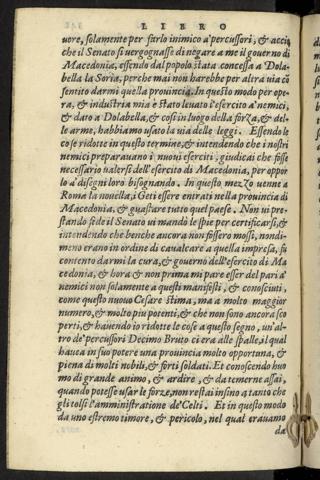 LIBRO
uore, solamente per farlo inimico a' percussori, & acciò
che il Senato si vergognasse di negare a me il gouerno di
Macedonia, essendo dal popolo stata concessa a Dola-
bella la Soria, perche mai non harebbe per altra uia cō
sentito darmi quella prouincia. In questo modo per ope-
ra, & industria mia è stato leuato l'esercito a' nemici,
& dato a Dolabella, & cosi in luogo della forza, & del-
le arme, habbiamo usato la uia delle leggi. Essendo le
cose ridotte in questo termine, & intendendo che i nostri
nemici preparauano i nuoui eserciti, giudicai che fosse
necessario ualersi dell'esercito di Macedonia, per oppor
lo a' disegni loro bisognando. In questo mezzo uenne a
Roma la nouella, i Geti essere entrati nella prouincia di
Macedonia, & guastare tutto quel paese. Non ui pre-
stando fede il Senato ui mandò le spie per certificarsi, &
intendendo che benche ancora non fossero mossi, nondi-
meno erano in ordine di caualcare a quella impresa, fu
contento darmi la cura, & gouerno dell'esercito di Ma
cedonia, & hora & non prima mi pare esser del pari a'
nemici non solamente a questi manifesti, & conosciuti,
come questo nuouo Cesare stima, ma a molto maggior
numero, & molto piu potenti, & che non sono ancora sco
perti, & hauendo io ridotte le cose a questo segno, un'al-
tro de' percussori Decimo Bruto ci era alle spalle, il qual
hauea in suo potere una prouincia molto opportuna, &
piena di molti nobili, & forti soldati. Et conoscendo huo
mo di grande animo, & ardire, & da temerne assai,
quando potesse usar le forze, non restai insino a tanto che
gli tolsi l'amministratione de' Celti. Et in questo modo
da uno estremo timore, & pericolo, nel qual erauamo
da